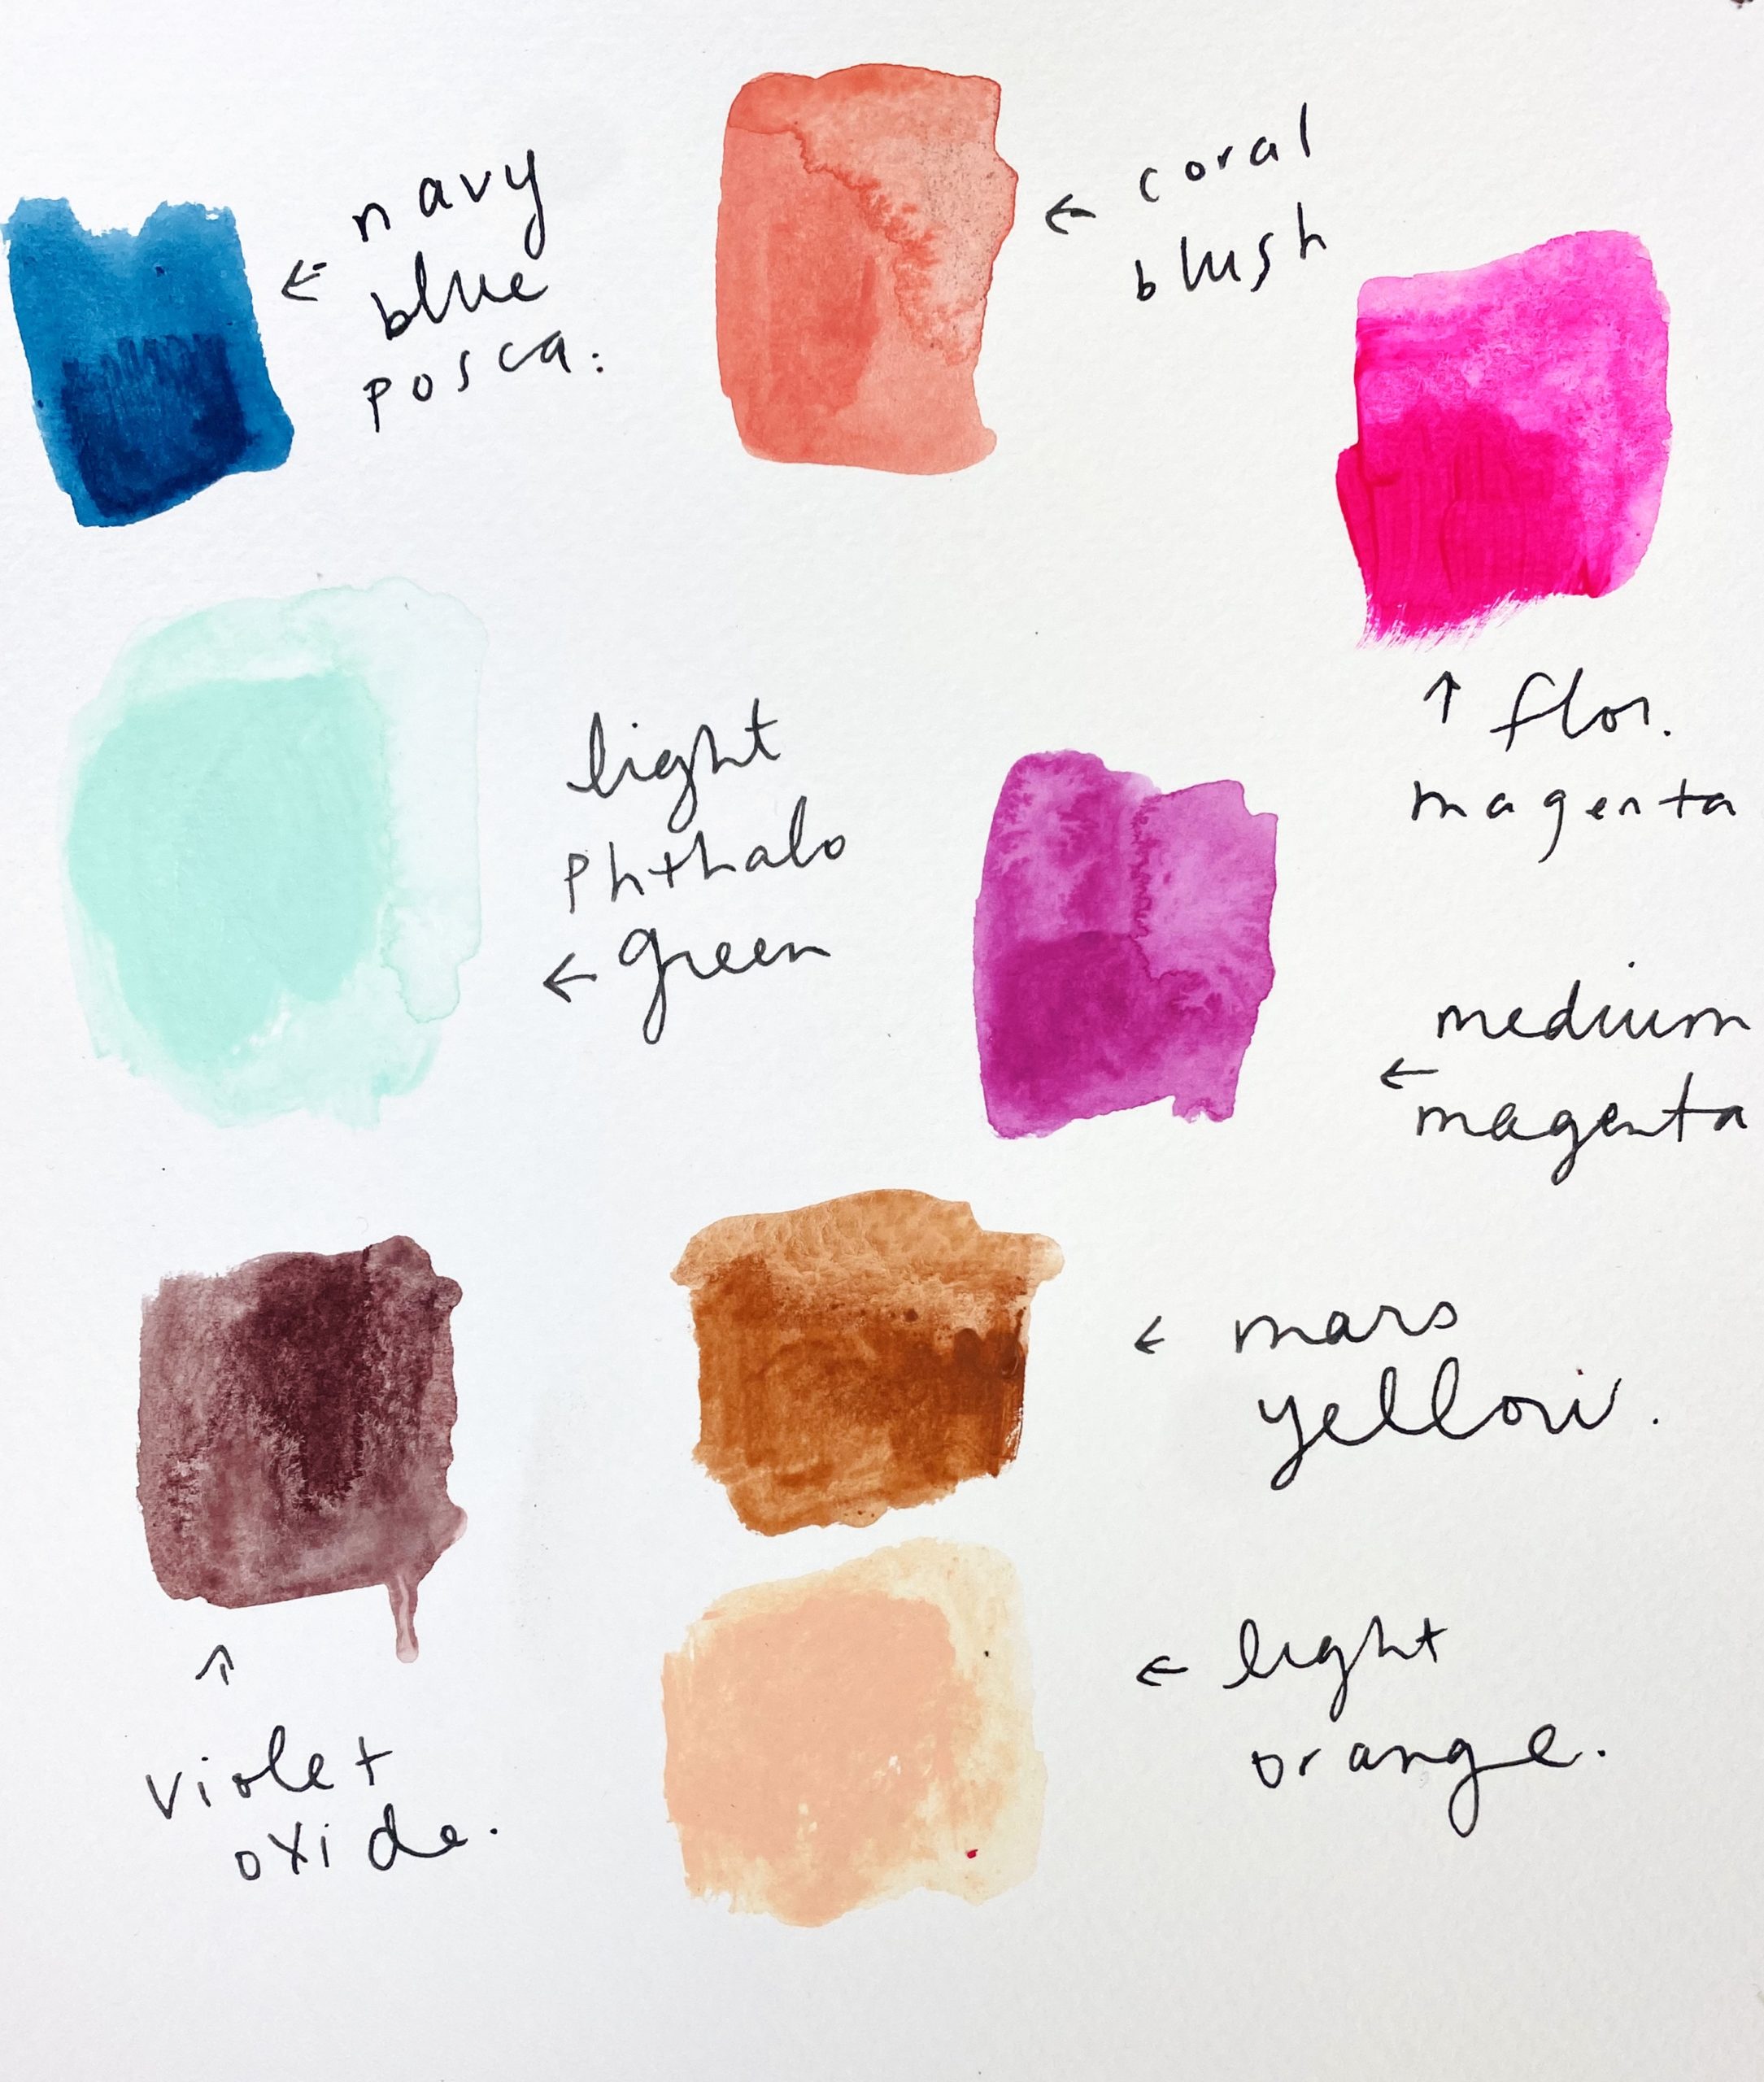 navy
blue
posca.
coral
blush
flor.
magenta
light
Phthalo
green
medium
magenta
mars
yellow.
violet
oxide.
light
orange.